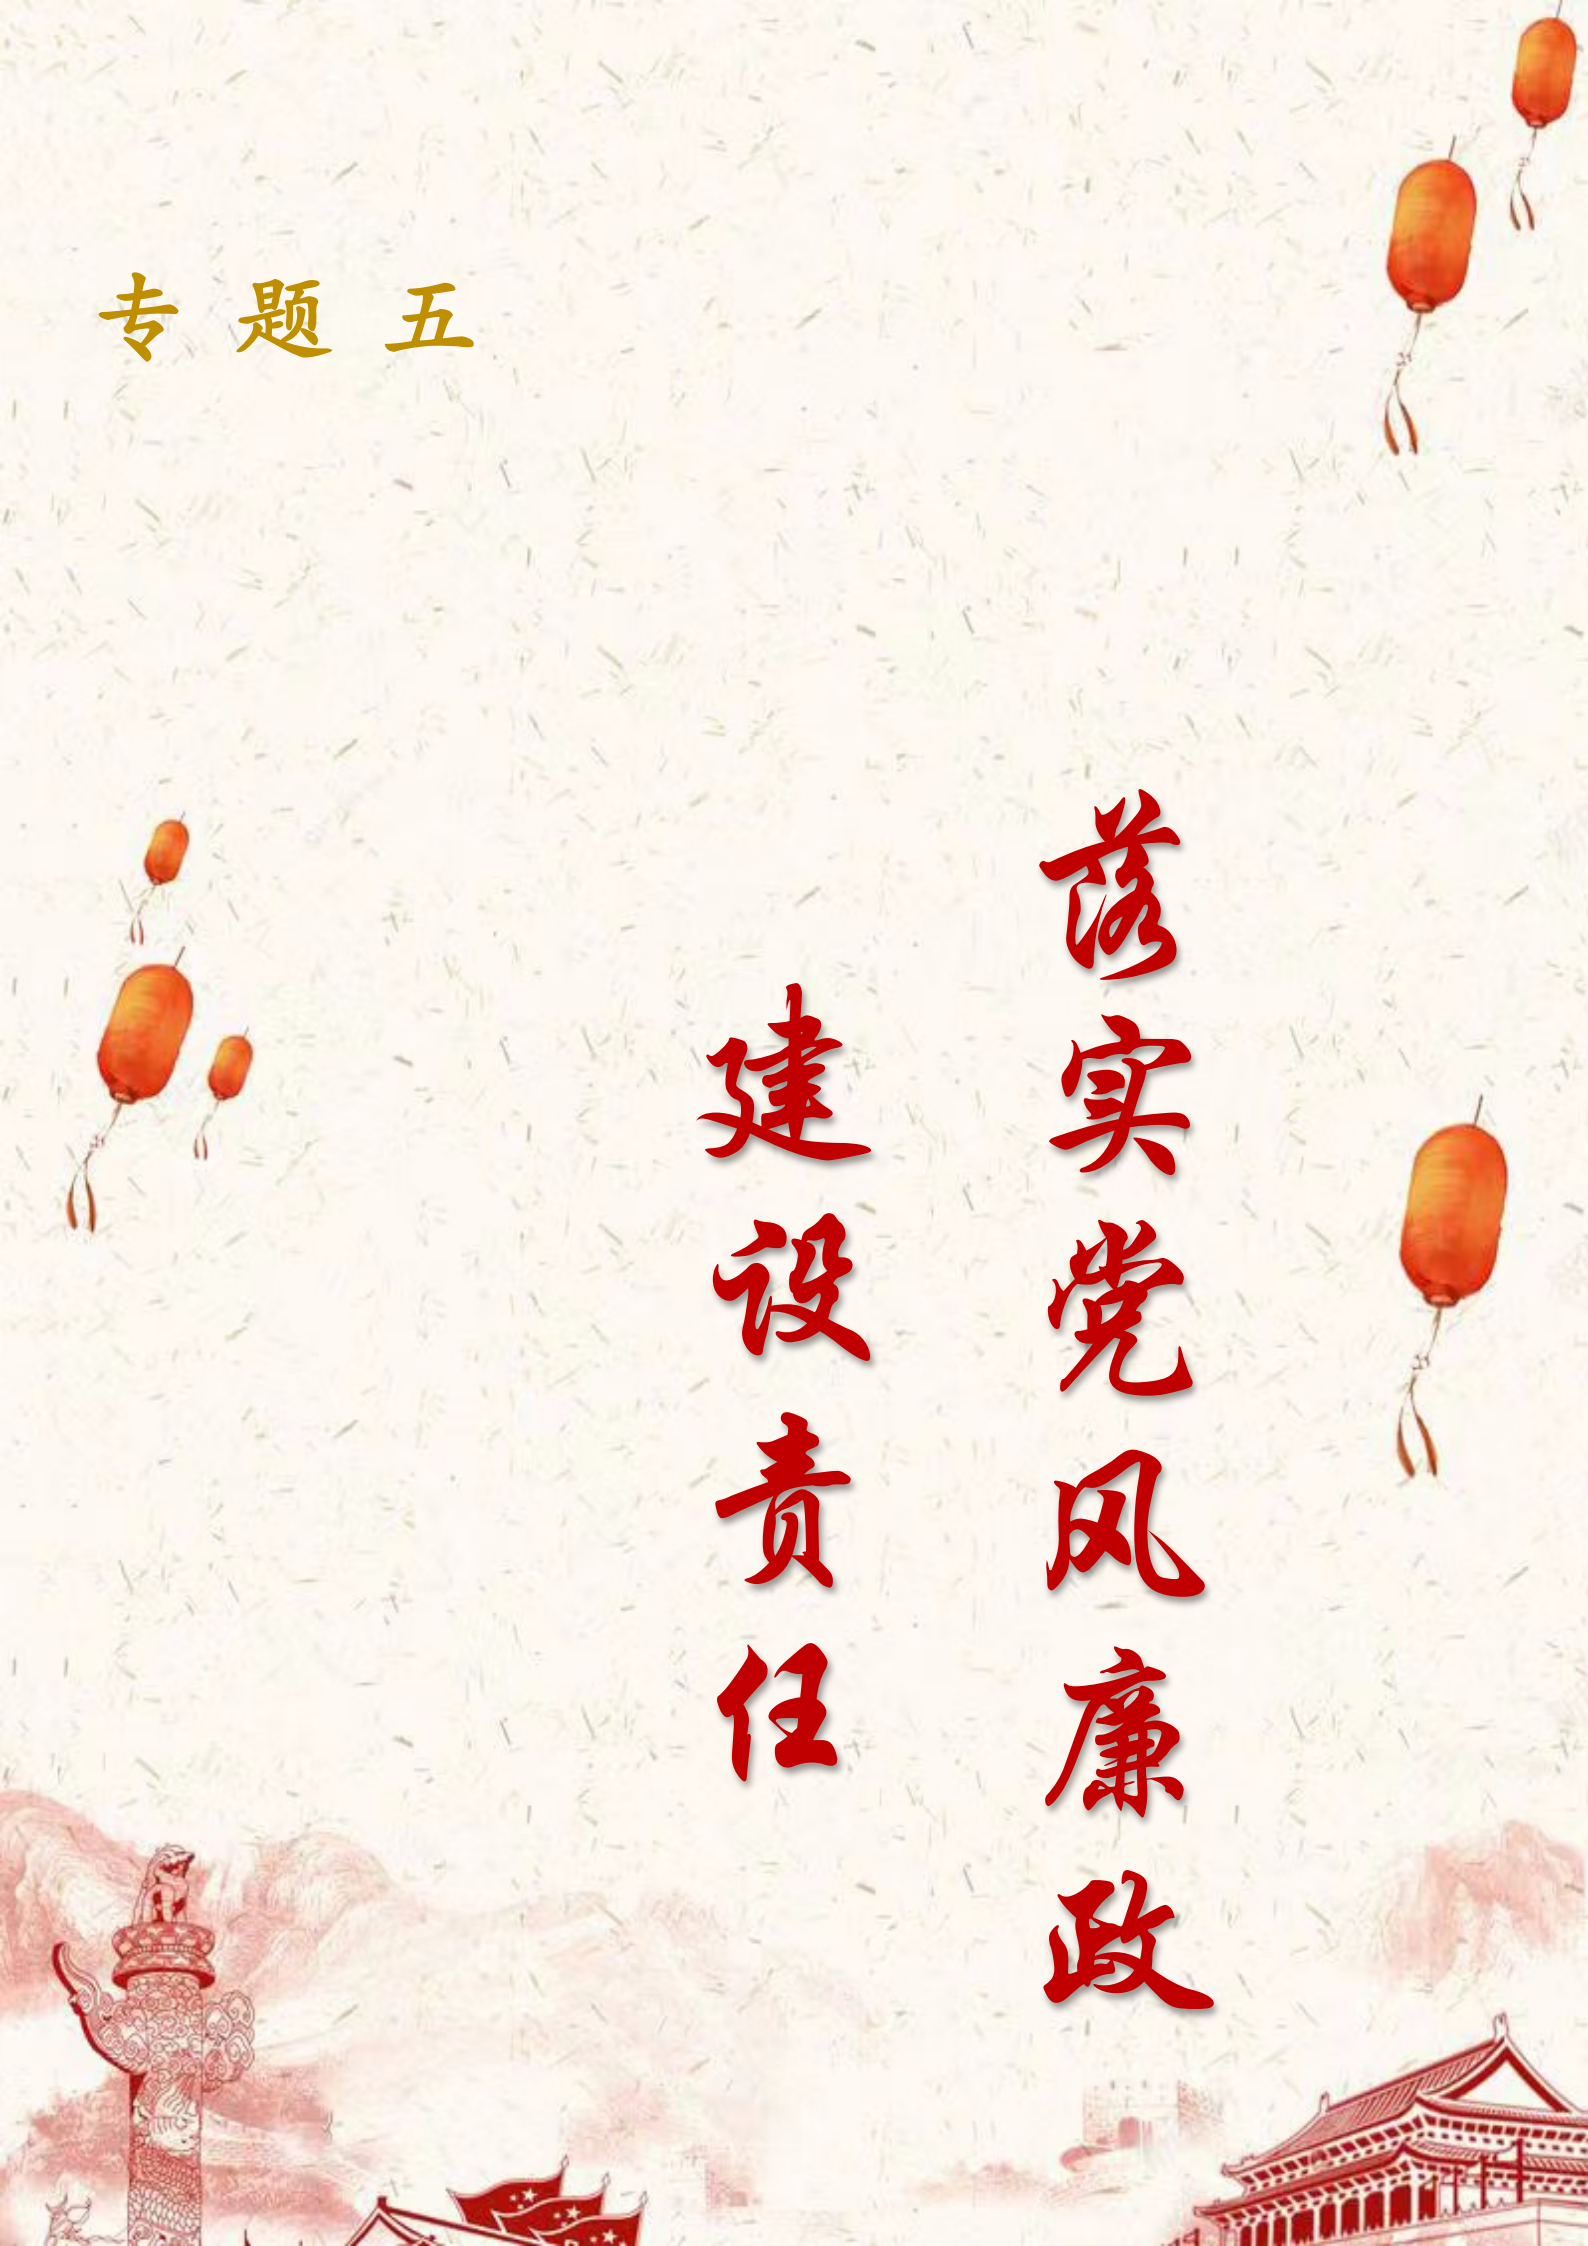 专题五
落实党风廉政
建设责任